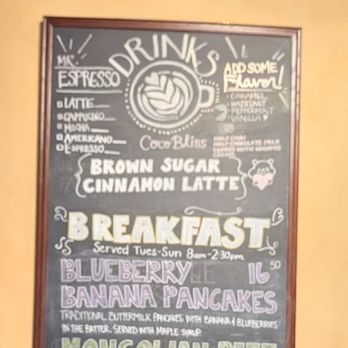 DRINKS
MR. ESPRESSO
LATTE
CAPPUCINO
MOCHA
AMERICANO
ESPRESSO
ADD SOME
Flavor!
CARAMEL
HAZELNUT
PEPPERMINT
VANILLA
Coco Bliss
HALF CHAI
HALF CHOCOLATE MILK
TOPPED WITH WHIPPED
CREAM
BROWN SUGAR
CINNAMON LATTE
BREAKFAST
Served Tues-Sun 8am-2:30pm
BLUEBERRY 16 50
BANANA PANCAKES
TRADITIONAL BUTTERMILK PANCAKES WITH BANANA & BLUEBERRIES
IN THE BATTER. SERVED WITH MAPLE SYRUP